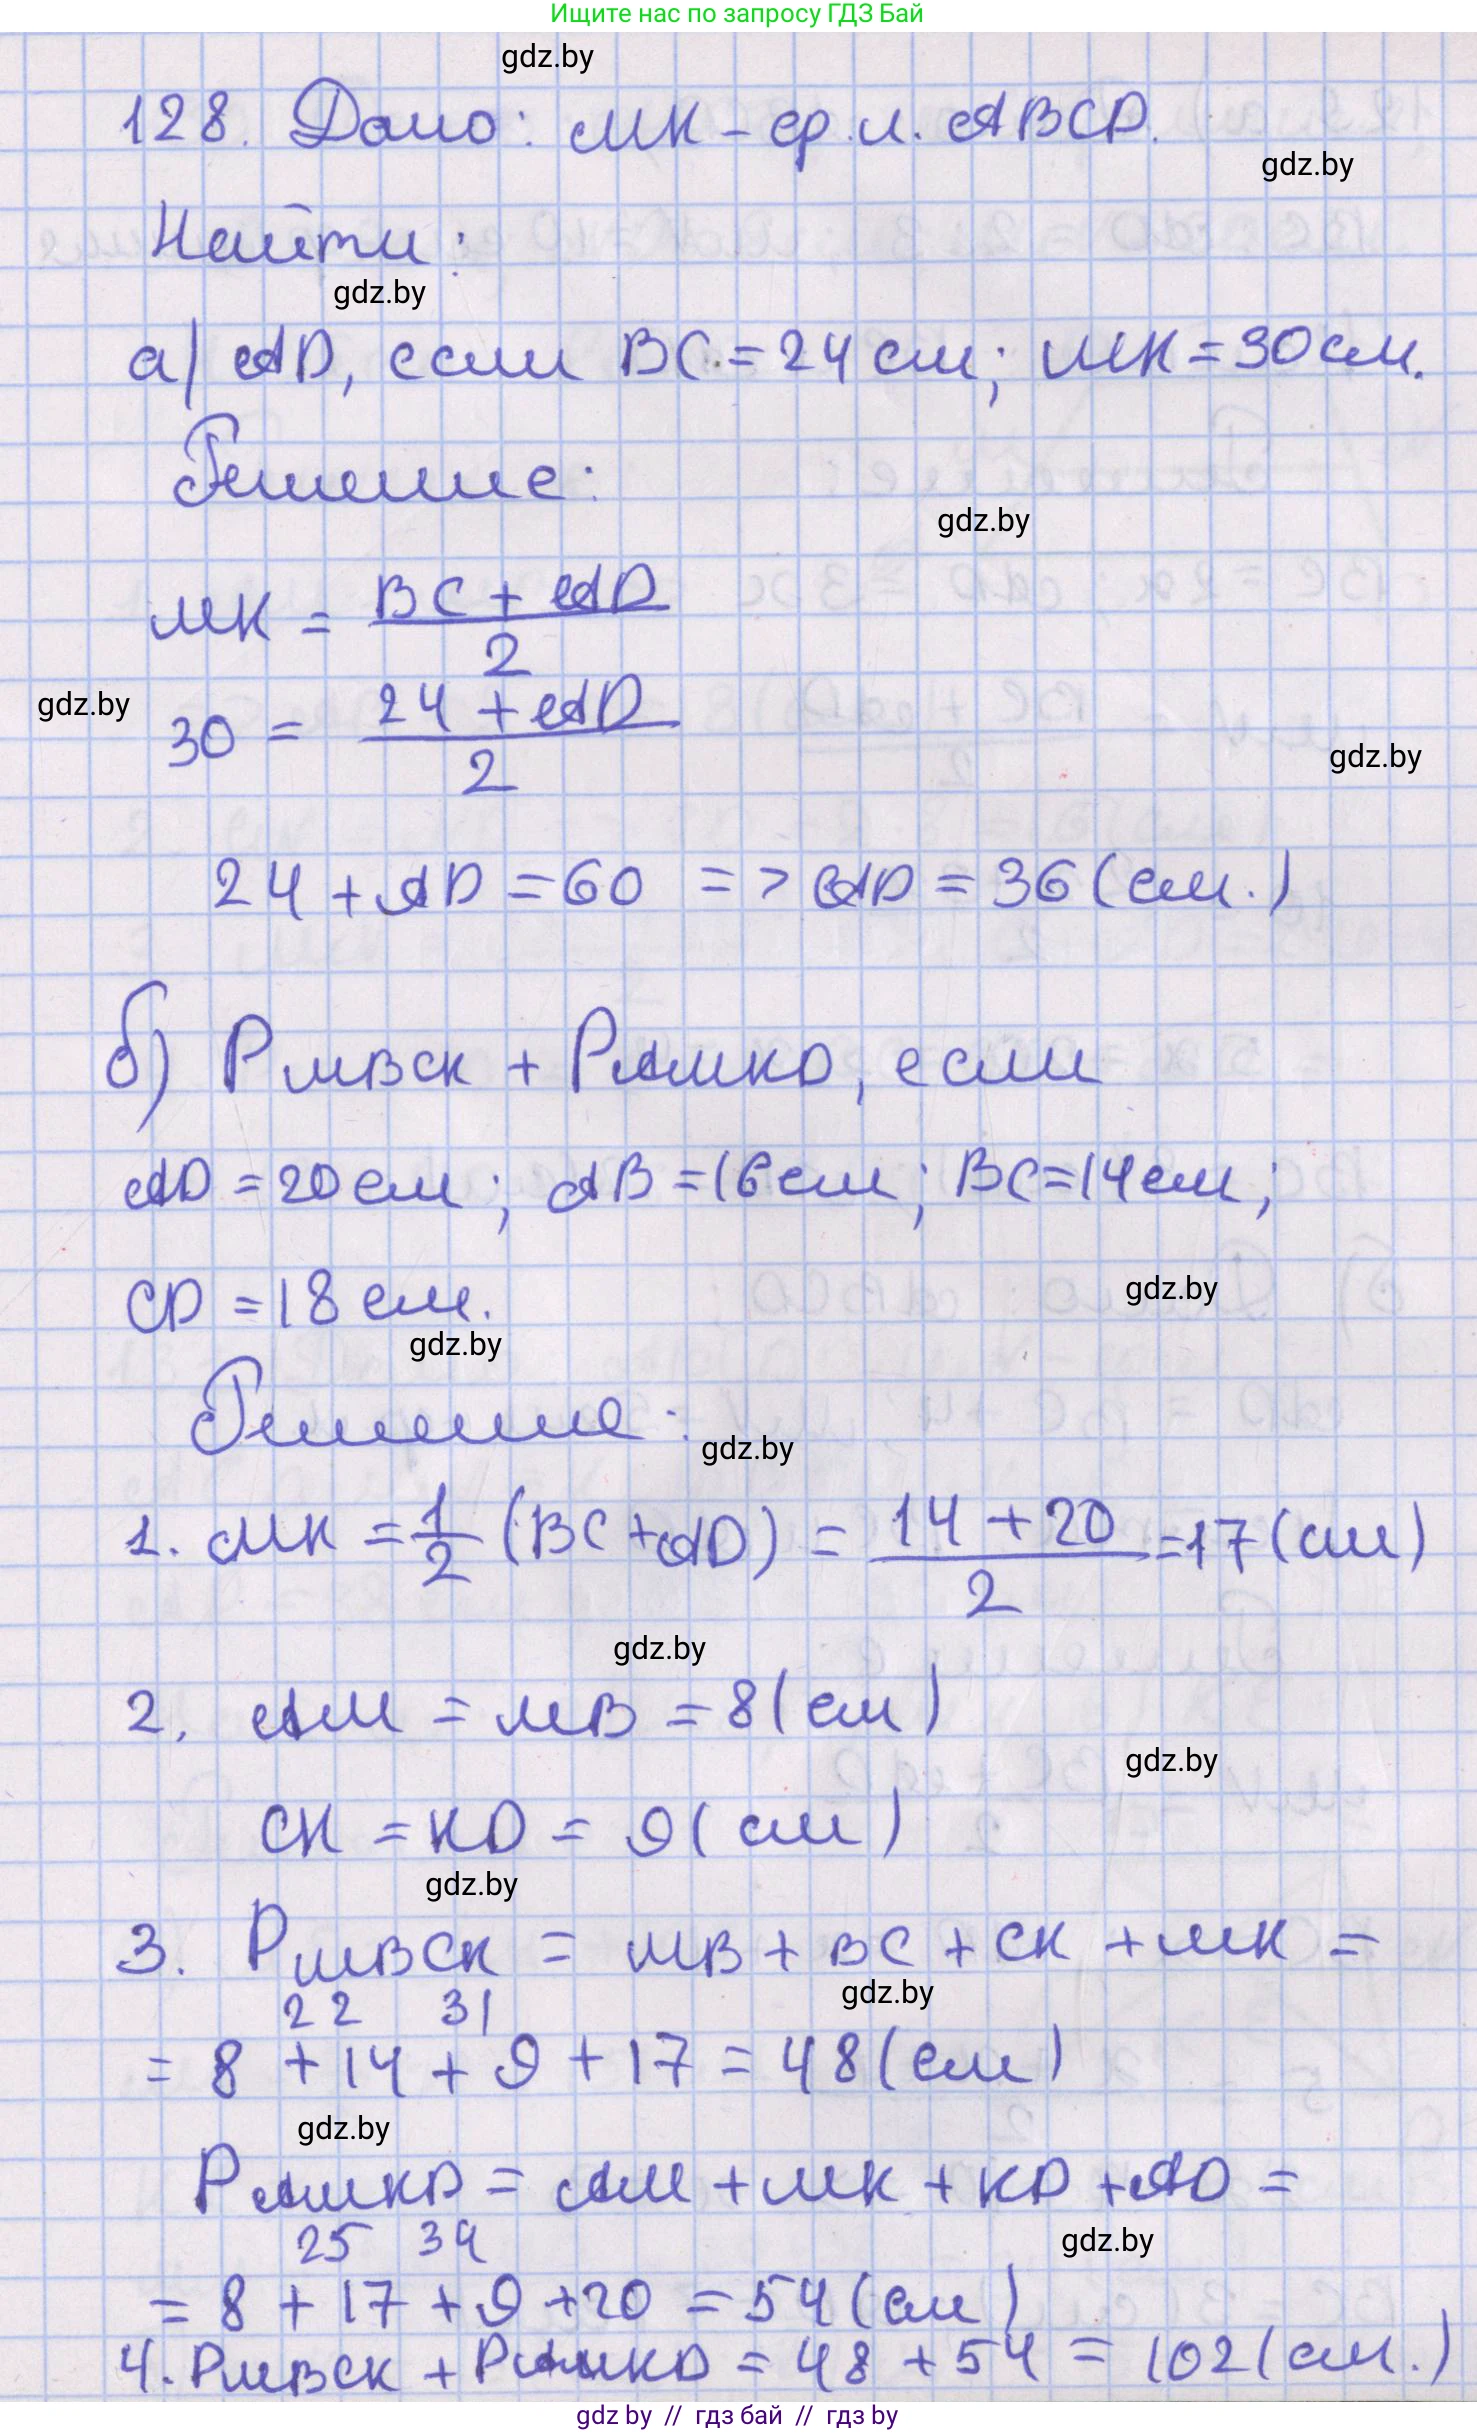 Ищите нас по запросу ГДЗ Бай
gdz.by
128. Дано: МК – ср. л. ABCD.
gdz.by
Найти:
gdz.by
а) AD, если BC = 24 см; МК = 30 см.
Решение:
gdz.by
МК = BC + AD / 2
gdz.by
30 = 24 + AD / 2
gdz.by
24 + AD = 60 => AD = 36 (см.)
б) P МВСК + P АМКD, если
AD = 20 см; AB = 16 см; BC = 14 см;
gdz.by
CD = 18 см.
gdz.by
Решение:
gdz.by
1. МК = 1/2 (BC + AD) = 14 + 20 / 2 = 17 (см)
gdz.by
2. АМ = МВ = 8 (см)
gdz.by
СК = КD = 9 (см)
gdz.by
3. P МВСК = МВ + ВС + СК + МК =
gdz.by
22 31
= 8 + 14 + 9 + 17 = 48 (см)
gdz.by
P АМКD = АМ + МК + КD + AD =
gdz.by
25 34
= 8 + 17 + 9 + 20 = 54 (см)
4. P МВСК + P АМКD = 48 + 54 = 102 (см.)
gdz by // гдз бай // гдз by